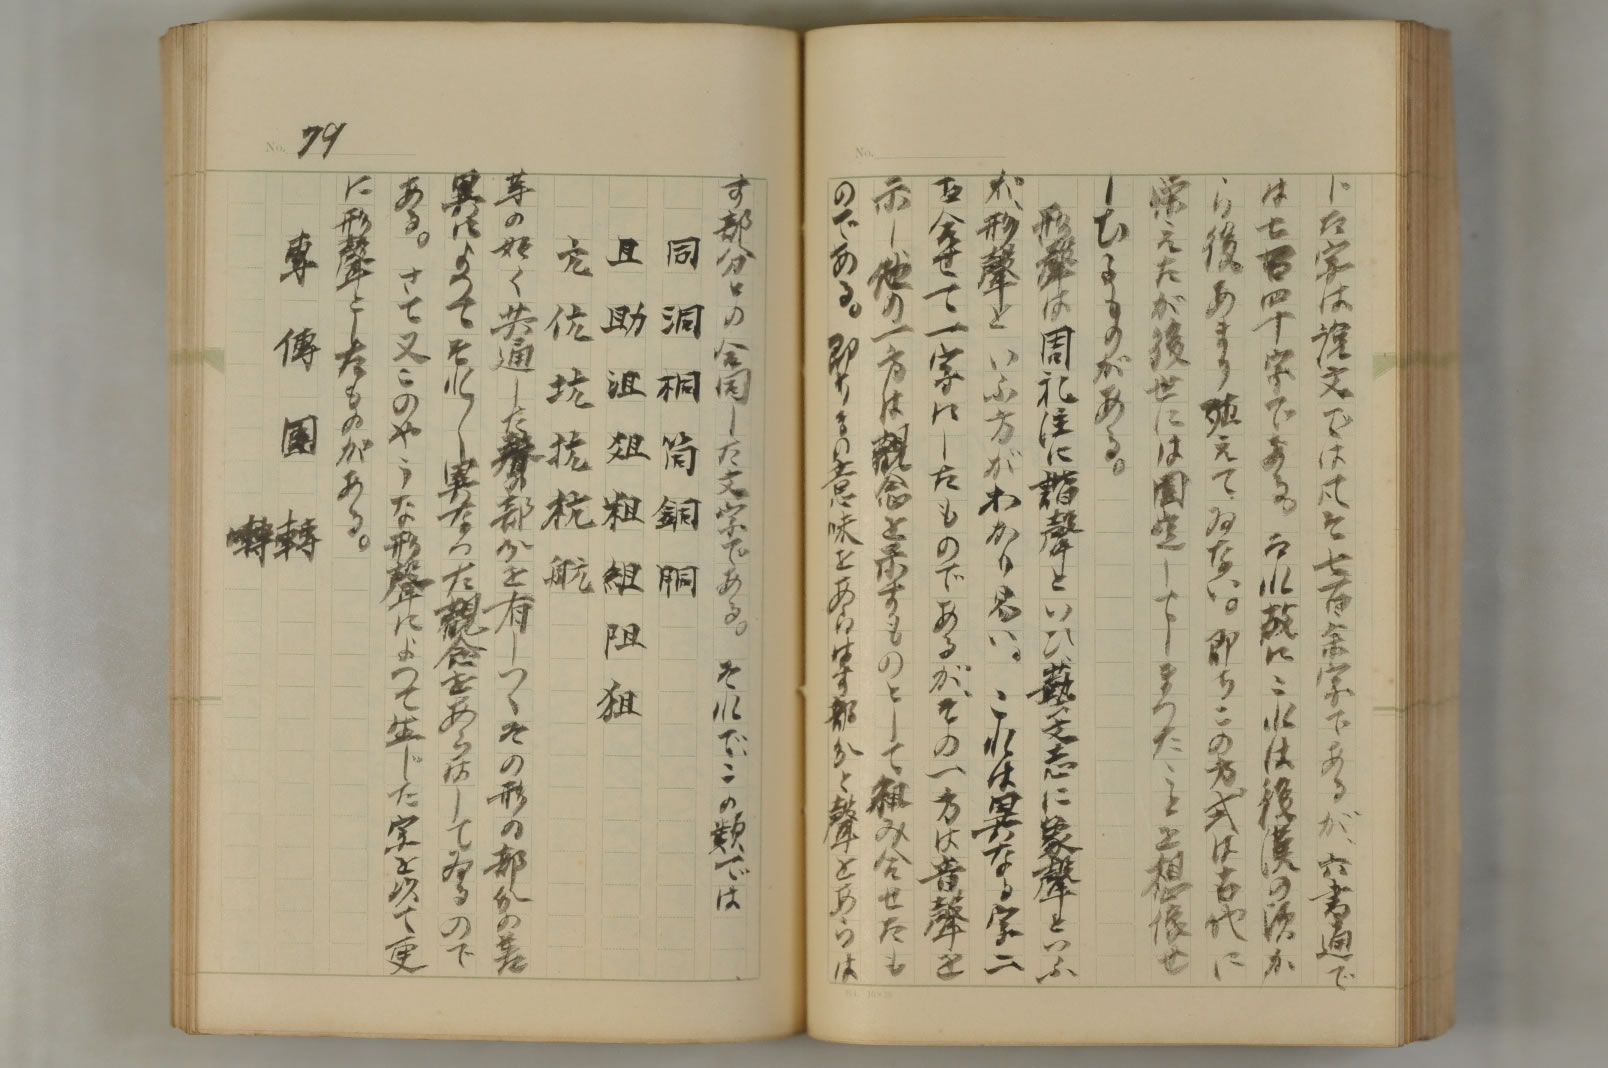 じた字は説文では凡そ七百余字であるが、六書通で
は七百四十字である。これ故にこれは後漢の頃か
ら後、あまり殖えてゐない。即ちこの方式は古代に
栄えたが後世には固定してしまつたことを想像せ
しむるものがある。
形聲は周礼注に諧聲といひ、藝文志に象聲といふ
が、形聲といふ方がわかり易い。これは異なる字二
を合せて一字にしたものであるが、その一方は音聲を
示し他の一方は觀念を示すものとして組み合せたも
のである。即ちその意味をあらはす部分と聲をあらは
No. 79
す部分との合同した文字である。それで、この類では
同 洞 桐 筒 銅 胴
且 助 沮 俎 粗 組 阻 狙
亢 伉 坑 抗 杭 航
等の如く共通した聲の部分を有しつゝその形の部分の差
異によつてそれ〳〵異なつた觀念をあらはしてゐるので
ある。さて又このやうな形聲によつて生じた字を以て更
に形聲としたものがある。
專 傳 團 轉
囀
No.